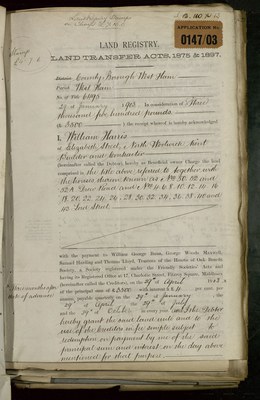 APPLICATION No.
0147/03
LAND REGISTRY.
LAND TRANSFER ACTS, 1875 & 1897.
District County Borough West Ham
Parish West Ham
No. of Title
29th January 1903. In consideration of Three
thousand five hundred pounds
£3500 the receipt whereof is hereby acknowledged
I, William Harris
of Elizabeth Street, North Woolwich, Kent
Builder and Contractor
(hereinafter called the Debtor), hereby as Beneficial owner Charge the land
comprised in the title above referred to together with
the houses thereon known as
32A and Nos 4 6 8 10 12 14 16
18. 20. 22. 24. 26. 28. 30. 32. 34. 36. 38. 40 and
42 Street
with the payment to William George Bunn, George Woods Maxwell,
Samuel Harding and Thomas Lloyd, Trustees of the Hearts of Oak Benefit
Society, a Society registered under the Friendly Societies' Acts and
having its Registered Office at 17, Charlotte Street, Fitzroy Square, Middlesex
(hereinafter called the Creditors), on the 29th of April
of the principal sum of £3500 with interest at per cent. per
annum, payable quarterly on the 29th of January, the
29th of April 29th of July
and the 29th of October in every year and the Debtor
hereby grant the said land unto and to the
use of the Creditors in fee simple subject to
redemption on payment by me of the said
principal sum and interest on the day above
mentioned for that purpose